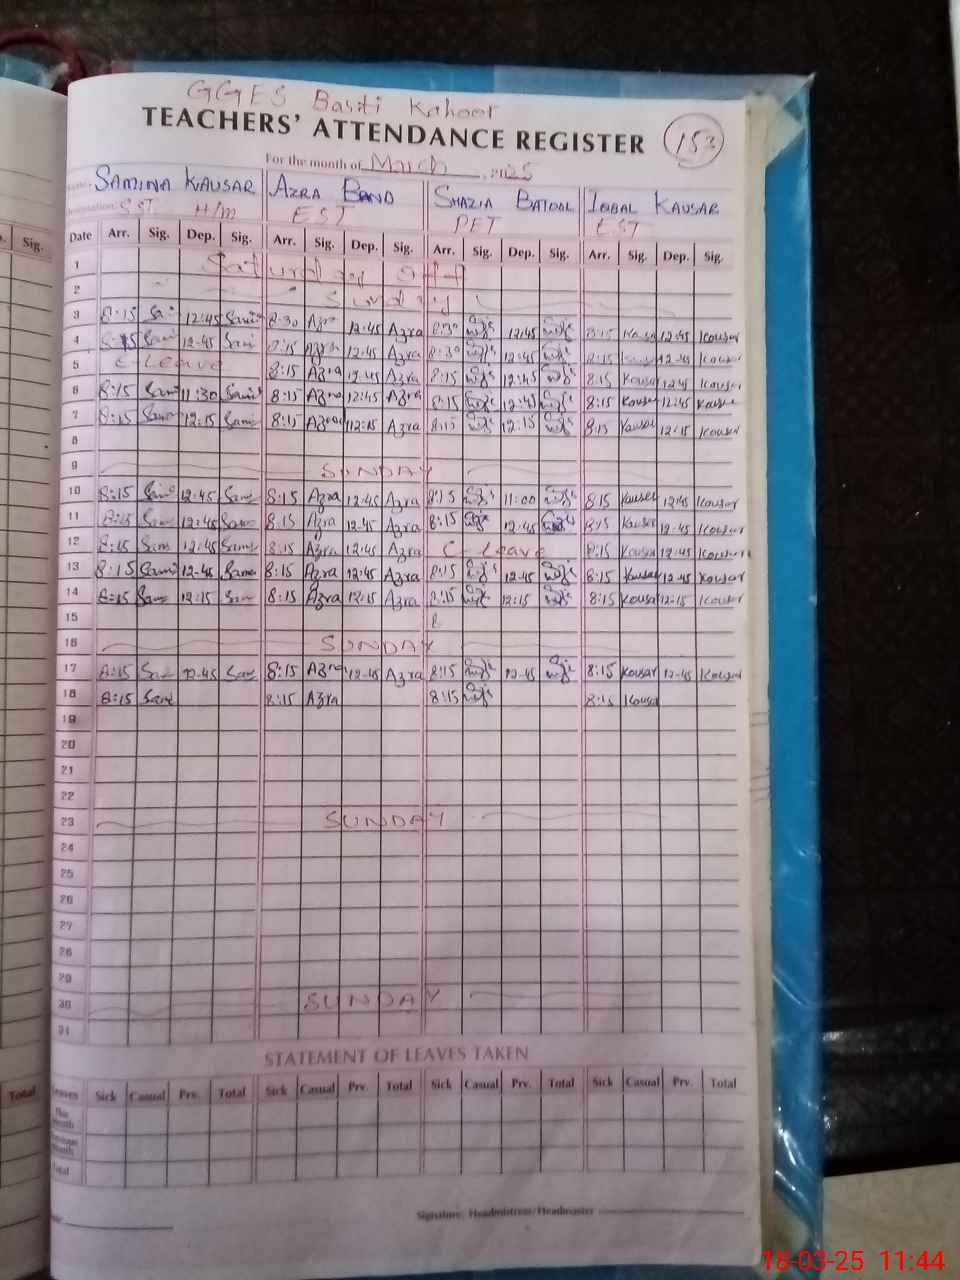 GGES Basti Kahoor
TEACHERS' ATTENDANCE REGISTER
153
For the month of March, 2025
Name: SAMINA KAUSAR AZRA BANO SHAZIA BATOOL IQBAL KAUSAR
Designation SST H/M EST PET EST
Sig. Date Arr. Sig. Dep. Sig. Arr. Sig. Dep. Sig. Arr. Sig. Dep. Sig. Arr. Sig. Dep. Sig.
1 Saturday Off
2 Sunday
3 8:15 12:45 8:30 Azra 12:45 Azra 8:30 12:45 8:15 12:45 Kousar
4 8:15 12:45 8:15 Azra 12:45 Azra 8:30 12:45 8:15 12:45
5 C Leave 8:15 Azra 12:45 Azra 8:15 12:45 8:15 Kousar 12:45 Kousar
6 8:15 11:30 8:15 Azra 12:45 Azra 8:15 12:45 8:15 Kouser 12:45
7 8:15 12:15 8:15 Azra 12:15 Azra 8:15 12:15 8:15 Kousar 12:15 Kousar
8
9 SUNDAY
10 8:15 12:45 8:15 Azra 12:45 Azra 8:15 11:00 8:15 Kauser 12:45 Kousar
11 8:15 12:45 8:15 Azra 12:45 Azra 8:15 12:45 8:15 Kauser 12:45 Kousar
12 8:15 Sam 12:45 Sam 8:15 Azra 12:45 Azra C-Leave 8:15 Kousar 12:45 Kousar
13 8:15 Sam 12:45 Sam 8:15 Azra 12:45 Azra 8:15 12:45 8:15 Kousar 12:45 Kousar
14 8:15 Sam 12:15 Sam 8:15 Azra 12:15 Azra 8:15 12:15 8:15 Kousar 12:15 Kousar
15
16 SUNDAY
17 8:15 Sam 12:45 Sam 8:15 Azra 12:45 Azra 8:15 12:45 8:15 Kousar 12:45 Kousar
18 8:15 Sam 8:15 Azra 8:15 8:15 Kousar
19
20
21
22
23 SUNDAY
24
25
26
27
28
29
30 SUNDAY
31
STATEMENT OF LEAVES TAKEN
Total Leaves Sick Casual Prv. Total Sick Casual Prv. Total Sick Casual Prv. Total Sick Casual Prv. Total
This Month
Previous Month
Total
Signature: Headmistress/Headmaster
18-03-25 11:44